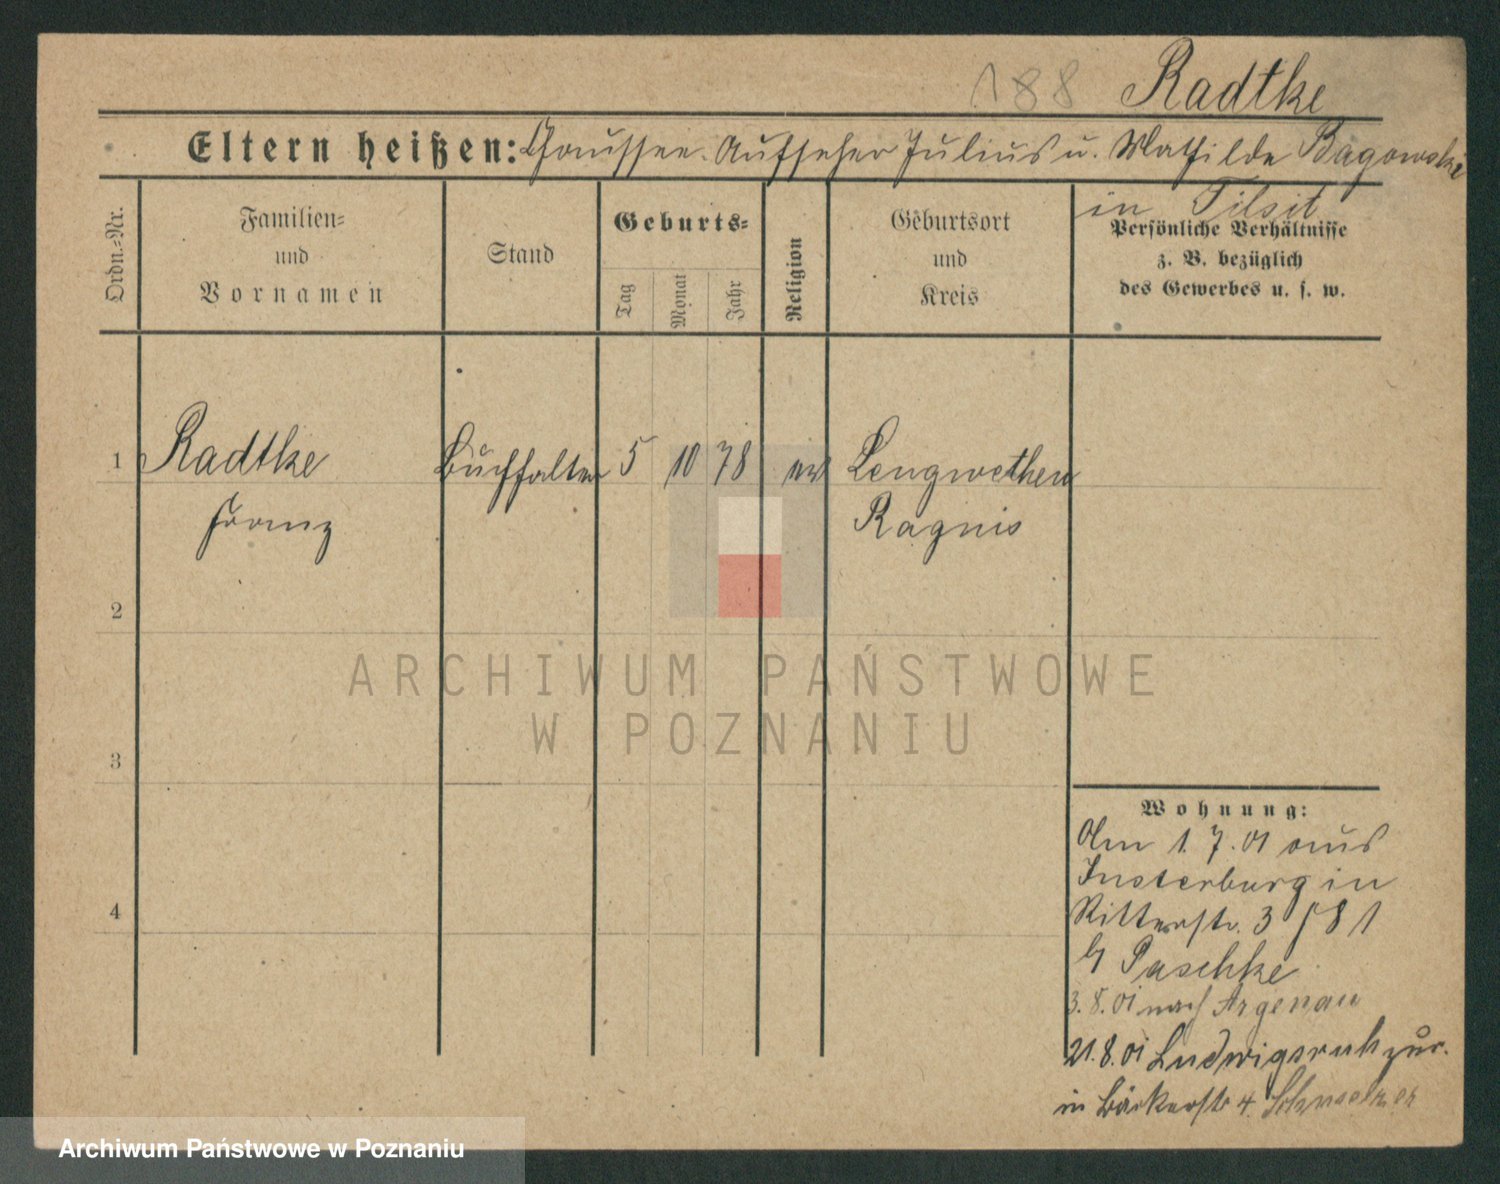 188 Radtke
Eltern heißen: Chaussee-Aufseher Julius u. Mathilde Bagowski
in Tilsit
Ordn.-Nr.
Familien-
und
Vornamen
Stand
Geburts-
Tag
Monat
Jahr
Religion
Geburtsort
und
Kreis
Persönliche Verhältnisse
z. B. bezüglich
des Gewerbes u. s. w.
1 Radtke Buchhalter 5 10 78 ev Lengwethen
Franz Ragnis
2
3
4
ARCHIWUM PAŃSTWOWE
W POZNANIU
Wohnung:
Am 1.7.01 aus
Insterburg in
Ritterstr. 3 / 8 1
b/ Paschke
3.8.01 nach Argenau
21.8.01 Ludwigsruh zur.
in Bäckerstr 4. Schmelzer
Archiwum Państwowe w Poznaniu